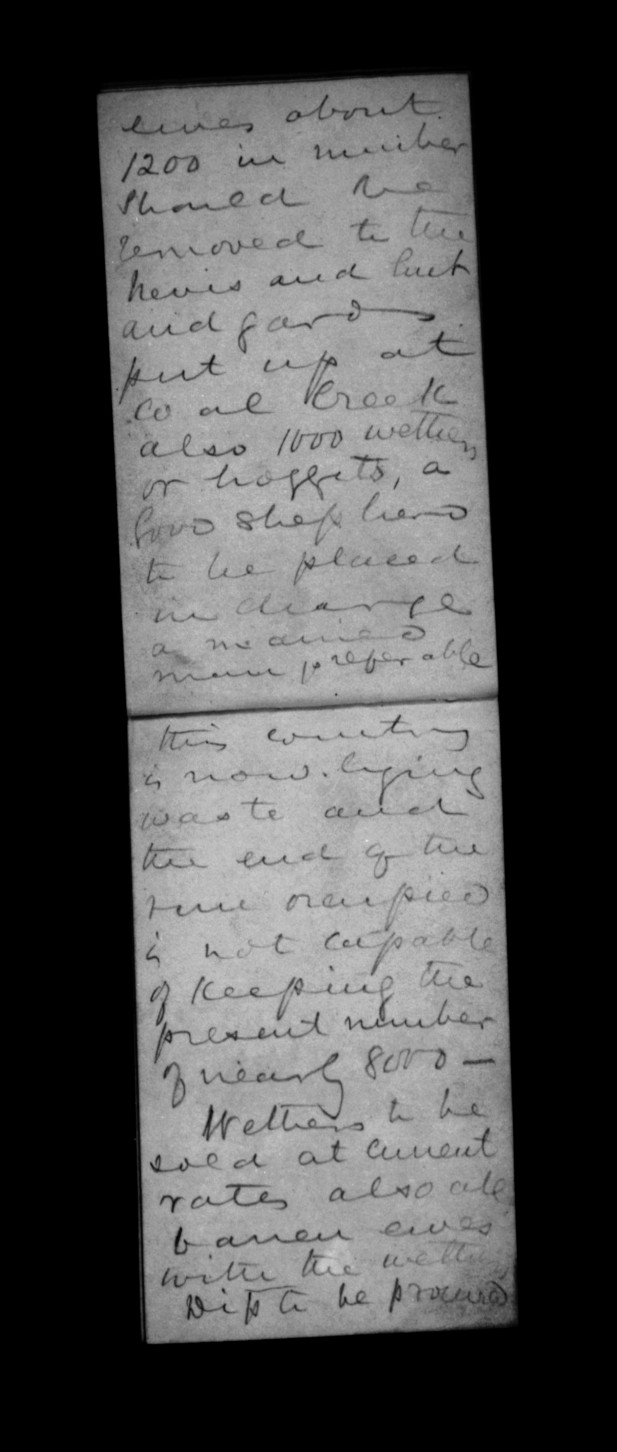 ewes about
1200 in number
should be
removed to the
and hut
and yards
put up at
Coal Creek
also 1000 wethers
or hoggets, a
good shepherd
to be placed
in charge
a married
man preferable
this country
is now lying
waste and
the end of the
run occupied
is not capable
of keeping the
present number
of nearly 8000 —
Wethers to be
sold at current
rates also all
barren ewes
with the wethers
Dip to be procured